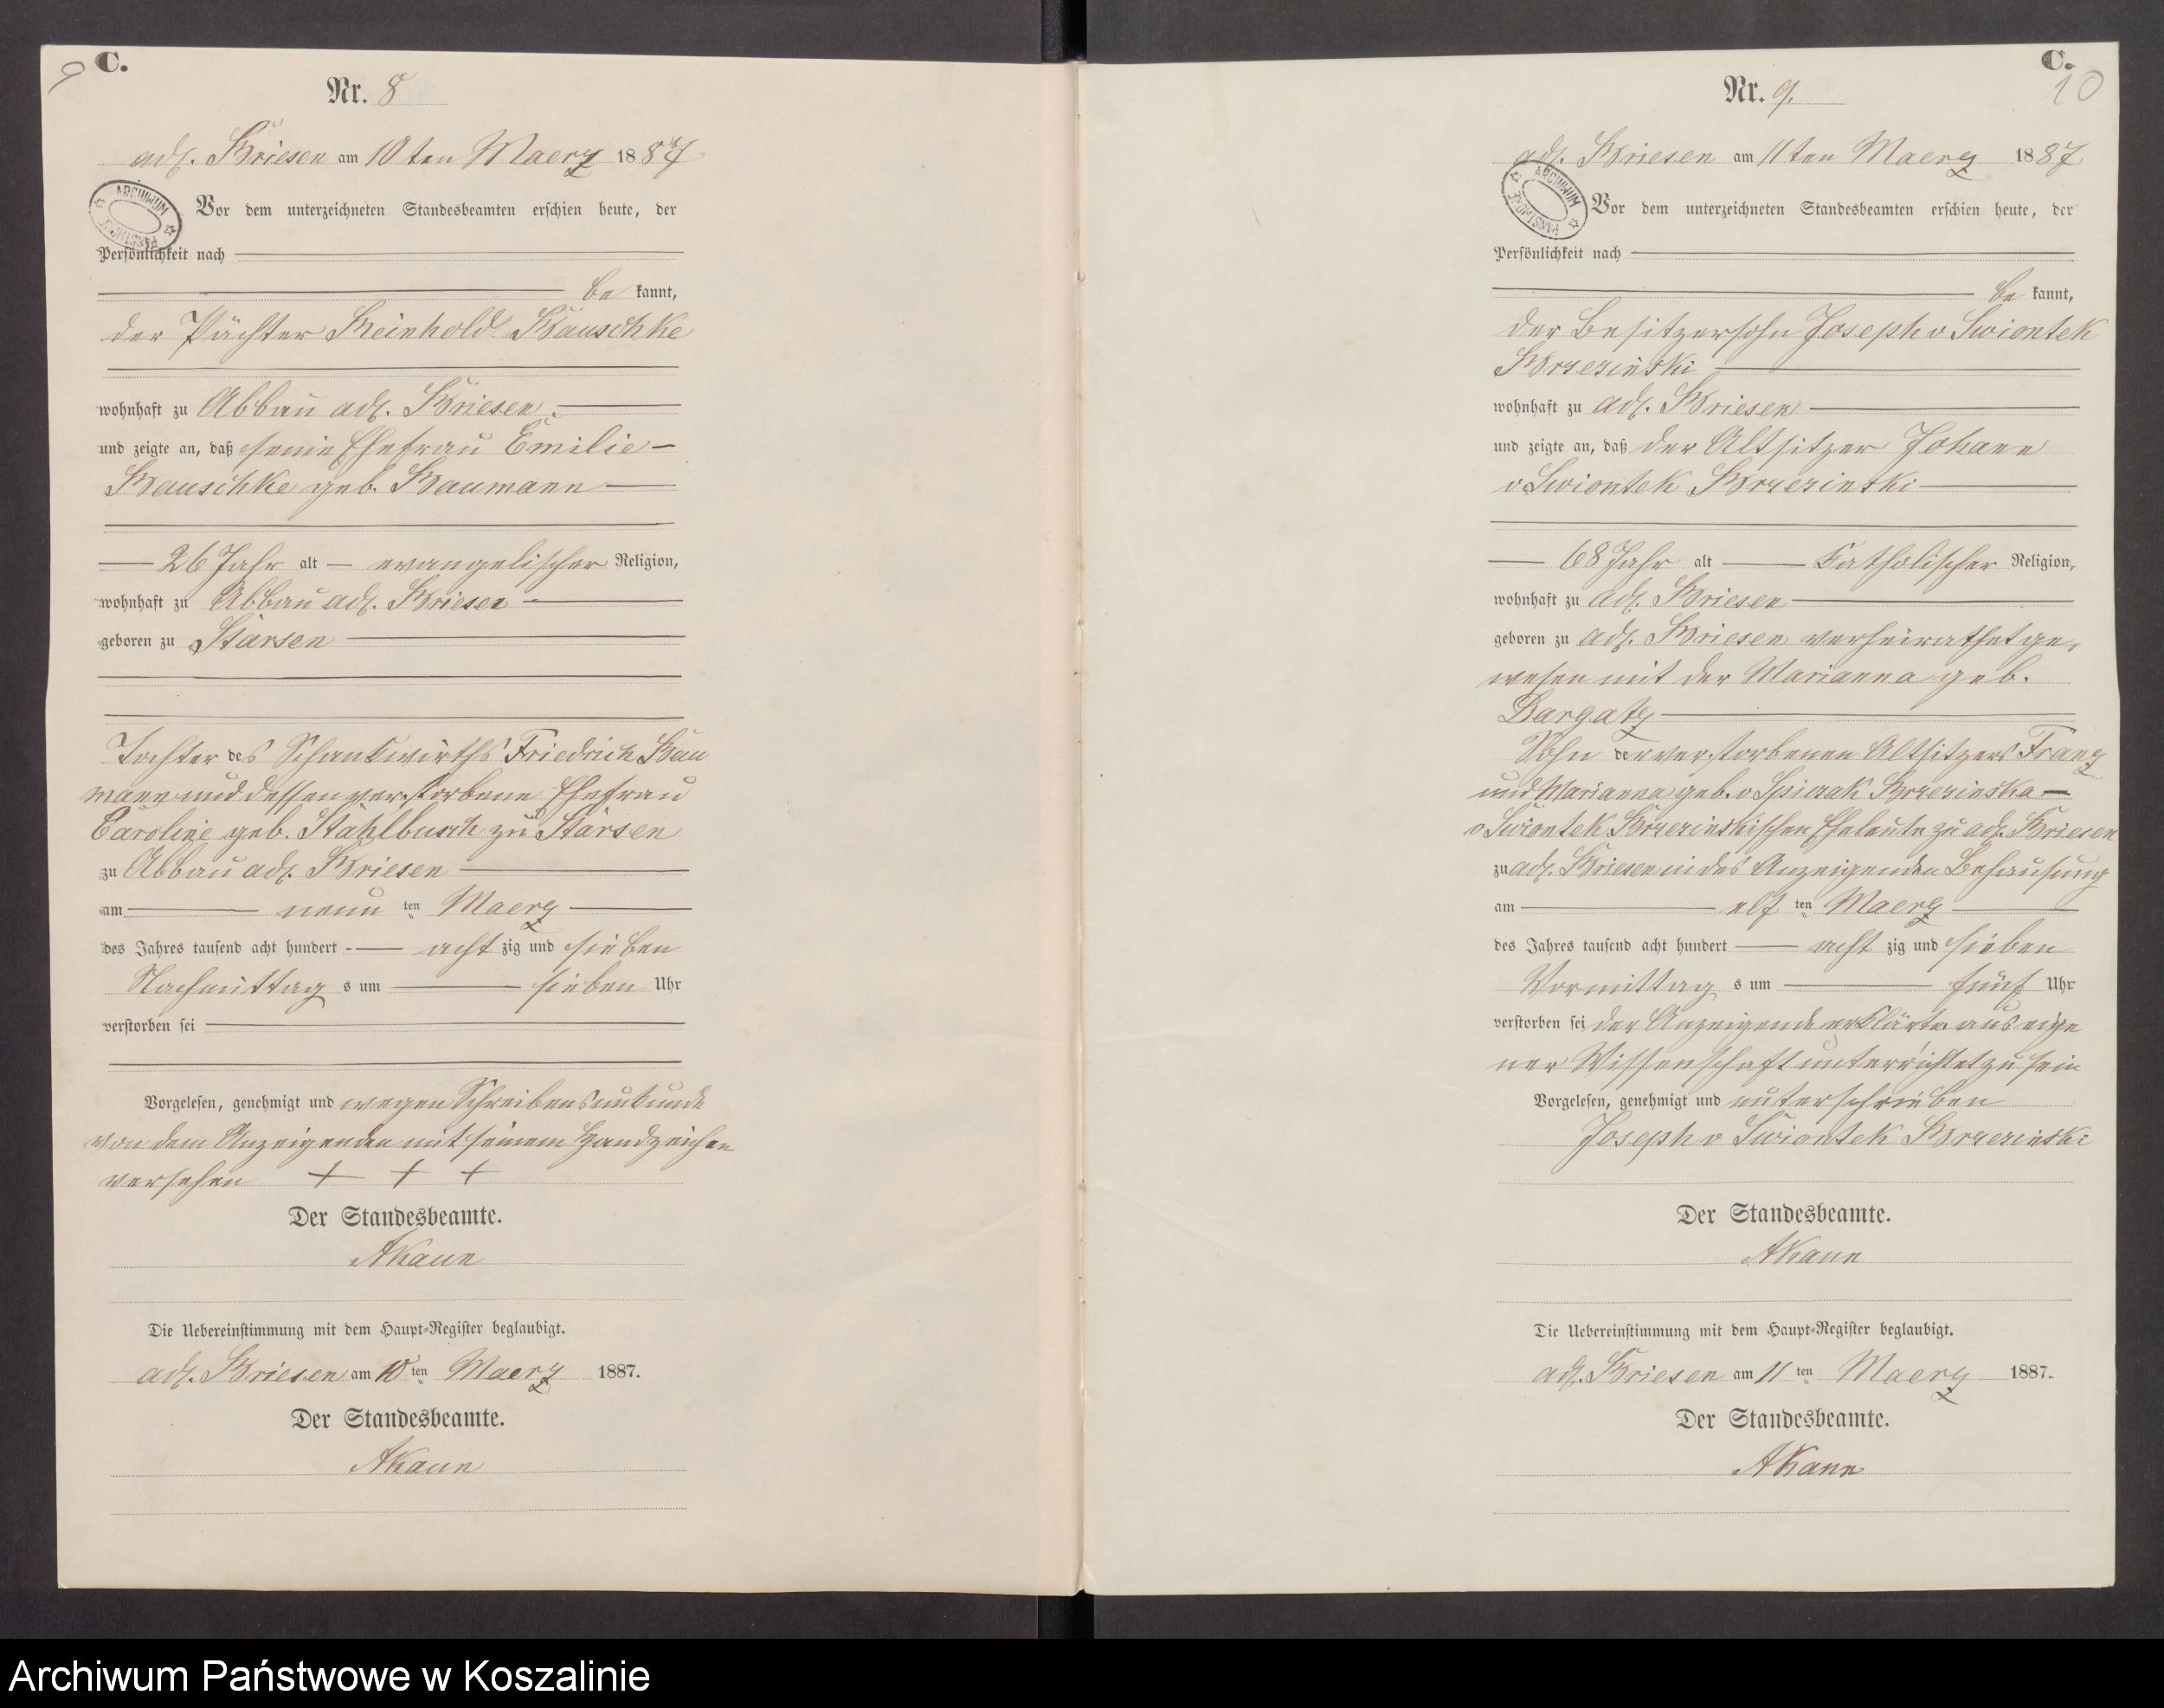 9
C.
Nr. 8
adl. Briesen am 10ten Maerz 1887
ARCHIWUM PAŃSTWOWE
Vor dem unterzeichneten Standesbeamten erschien heute, der
Persönlichkeit nach
be kannt,
der Pächter Reinhold Bauschke
wohnhaft zu Abbau adl. Briesen.
und zeigte an, daß seine Ehefrau Emilie
Bauschke geb. Baumann
26 Jahr alt evangelischer Religion,
wohnhaft zu Abbau adl. Briesen
geboren zu Stärsen
Tochter des Schankwirths Friedrich Bau
mann und dessen verstorbene Ehefrau
Caroline geb. Stahlbusch zu Stärsen
zu Abbau adl. Briesen
am neun ten Maerz
des Jahres tausend acht hundert acht zig und sieben
Nachmittag s um sieben Uhr
verstorben sei
Vorgelesen, genehmigt und wegen Schreibensunkunde
von dem Anzeigenden mit seinem Handzeichen
versehen + + +
Der Standesbeamte.
AKaun
Die Uebereinstimmung mit dem Haupt-Register beglaubigt.
adl. Briesen am 10ten Maerz 1887.
Der Standesbeamte.
AKaun
C.
10
Nr. 9.
adl. Briesen am 11ten Maerz 1887
ARCHIWUM PAŃSTWOWE
Vor dem unterzeichneten Standesbeamten erschien heute, der
Persönlichkeit nach
be kannt,
der Besitzersohn Joseph v Swiontek
Brzezinski
wohnhaft zu adl. Briesen
und zeigte an, daß der Altsitzer Johann
v Swiontek Brzezinski
68 Jahr alt Katholischer Religion,
wohnhaft zu adl. Briesen
geboren zu adl. Briesen verheirathet ge,
wesen mit der Marianna geb.
Bargatz
Sohn der verstorbenen Altsitzers Franz
und Marianna geb. v Brzezinska
v Swiontek Brzezinskischen Eheleute zu adl. Briesen
zu adl. Briesen in des Anzeigenden Behausung
am elf ten Maerz
des Jahres tausend acht hundert acht zig und sieben
Vormittag s um fünf Uhr
verstorben sei der Anzeigende erklärte aus eige
ner Wissenschaft unterrichtet zu sein
Vorgelesen, genehmigt und unterschrieben
Joseph v Swiontek Brzezinski
Der Standesbeamte.
AKaun
Die Uebereinstimmung mit dem Haupt-Register beglaubigt.
adl. Briesen am 11ten Maerz 1887.
Der Standesbeamte.
AKaun
Archiwum Państwowe w Koszalinie